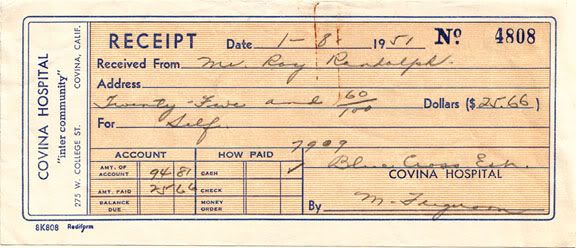 COVINA HOSPITAL
"inter community"
275 W. COLLEGE ST. COVINA, CALIF.
RECEIPT Date 1-8- 1951 No. 4808
Received From Mr. Roy Randolph.
Address
Twenty-Five and 60/100 Dollars ($25.66)
For Self.
7909
ACCOUNT HOW PAID
AMT. OF ACCOUNT 94 81 CASH ✓
Blue Cross Est.
AMT. PAID 25 66 CHECK
COVINA HOSPITAL
BALANCE DUE MONEY ORDER
By M. Ferguson
8K808 Rediform